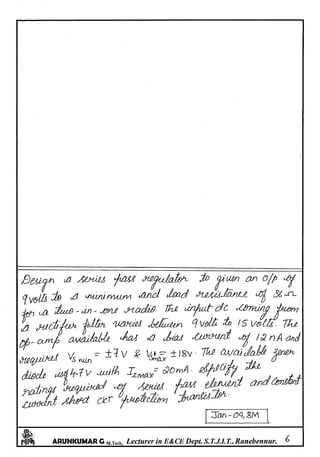 Design a series pass regulator to given an o/p of
9 volts to a minimum and load resistance of 36Ω
for a two-in-one radio. The input dc coming from
a rectifier filter varies between 9 volts to 15 volts. The
op-amp available has a bias current of 12 nA and
requires Vs min = ±7V & Vs max = ±18V. The available zener
diode is 4.7V with Izmax = 20mA. Specify the
ratings required of series pass element and constant
current short ckt protection transistor.
Jan-09, 8M
ARUNKUMAR G M.Tech, Lecturer in E&CE Dept. S.T.J.I.T., Ranebennur. 6